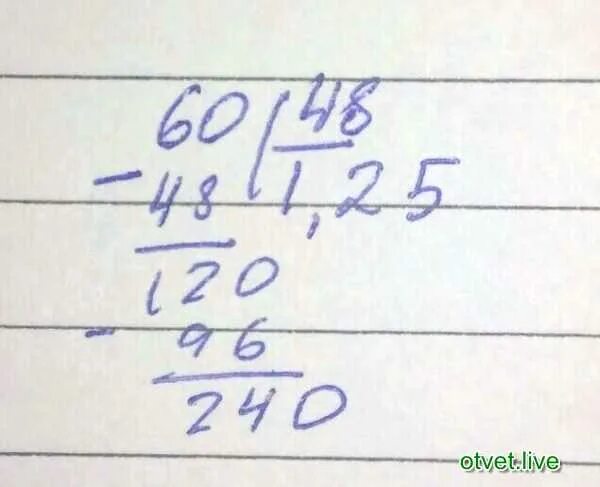 60 48
- 48 1,25
120
- 96
240
otvet.live